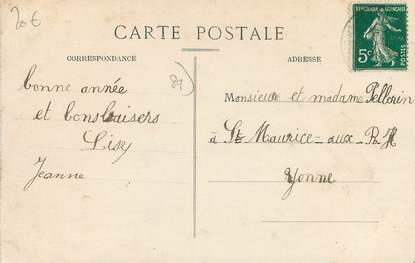 20€
CARTE POSTALE
CORRESPONDANCE
ADRESSE
REPUBLIQUE FRANÇAISE
5c
POSTES
bonne année
et bons baisers
Lise
Jeanne
89
Monsieur et madame Pellorin
à St Maurice-aux-R-H
Yonne